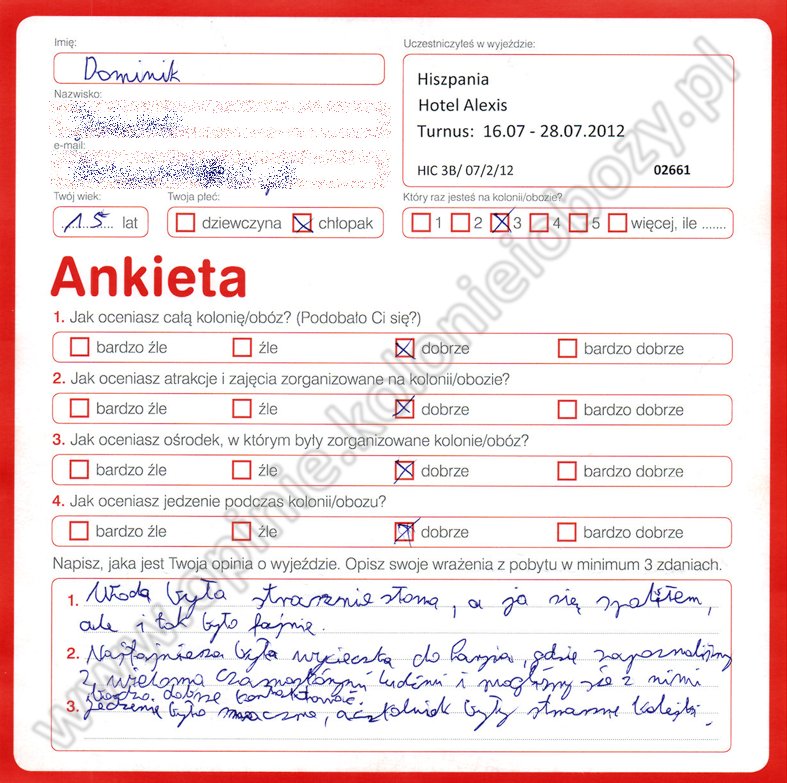 Imię:
Dominik
Uczestniczyłeś w wyjeździe:
Hiszpania
Hotel Alexis
Turnus: 16.07 - 28.07.2012
HIC 3B/ 07/2/12 02661
Nazwisko:
e-mail:
Twój wiek:
15 lat
Twoja płeć:
dziewczyna chłopak
Który raz jesteś na kolonii/obozie?
1 2 3 4 5 więcej, ile .......
Ankieta
1. Jak oceniasz całą kolonię/obóz? (Podobało Ci się?)
bardzo źle źle dobrze bardzo dobrze
2. Jak oceniasz atrakcje i zajęcia zorganizowane na kolonii/obozie?
bardzo źle źle dobrze bardzo dobrze
3. Jak oceniasz ośrodek, w którym były zorganizowane kolonie/obóz?
bardzo źle źle dobrze bardzo dobrze
4. Jak oceniasz jedzenie podczas kolonii/obozu?
bardzo źle źle dobrze bardzo dobrze
Napisz, jaka jest Twoja opinia o wyjeździe. Opisz swoje wrażenia z pobytu w minimum 3 zdaniach.
1. Woda była strasznie słona, a ja się spaliłem,
ale i tak było fajnie.
2. Najfajniesza była wycieczka do , gdzie zapoznaliśmy
z wieloma czarnoskórymi ludźmi i mogliśmy się z nimi
bardzo dobrze kontaktować.
3. Jedzenie było smaczne, aczkolwiek były straszne kolejki.
www.opinie.kolonieiobozy.pl